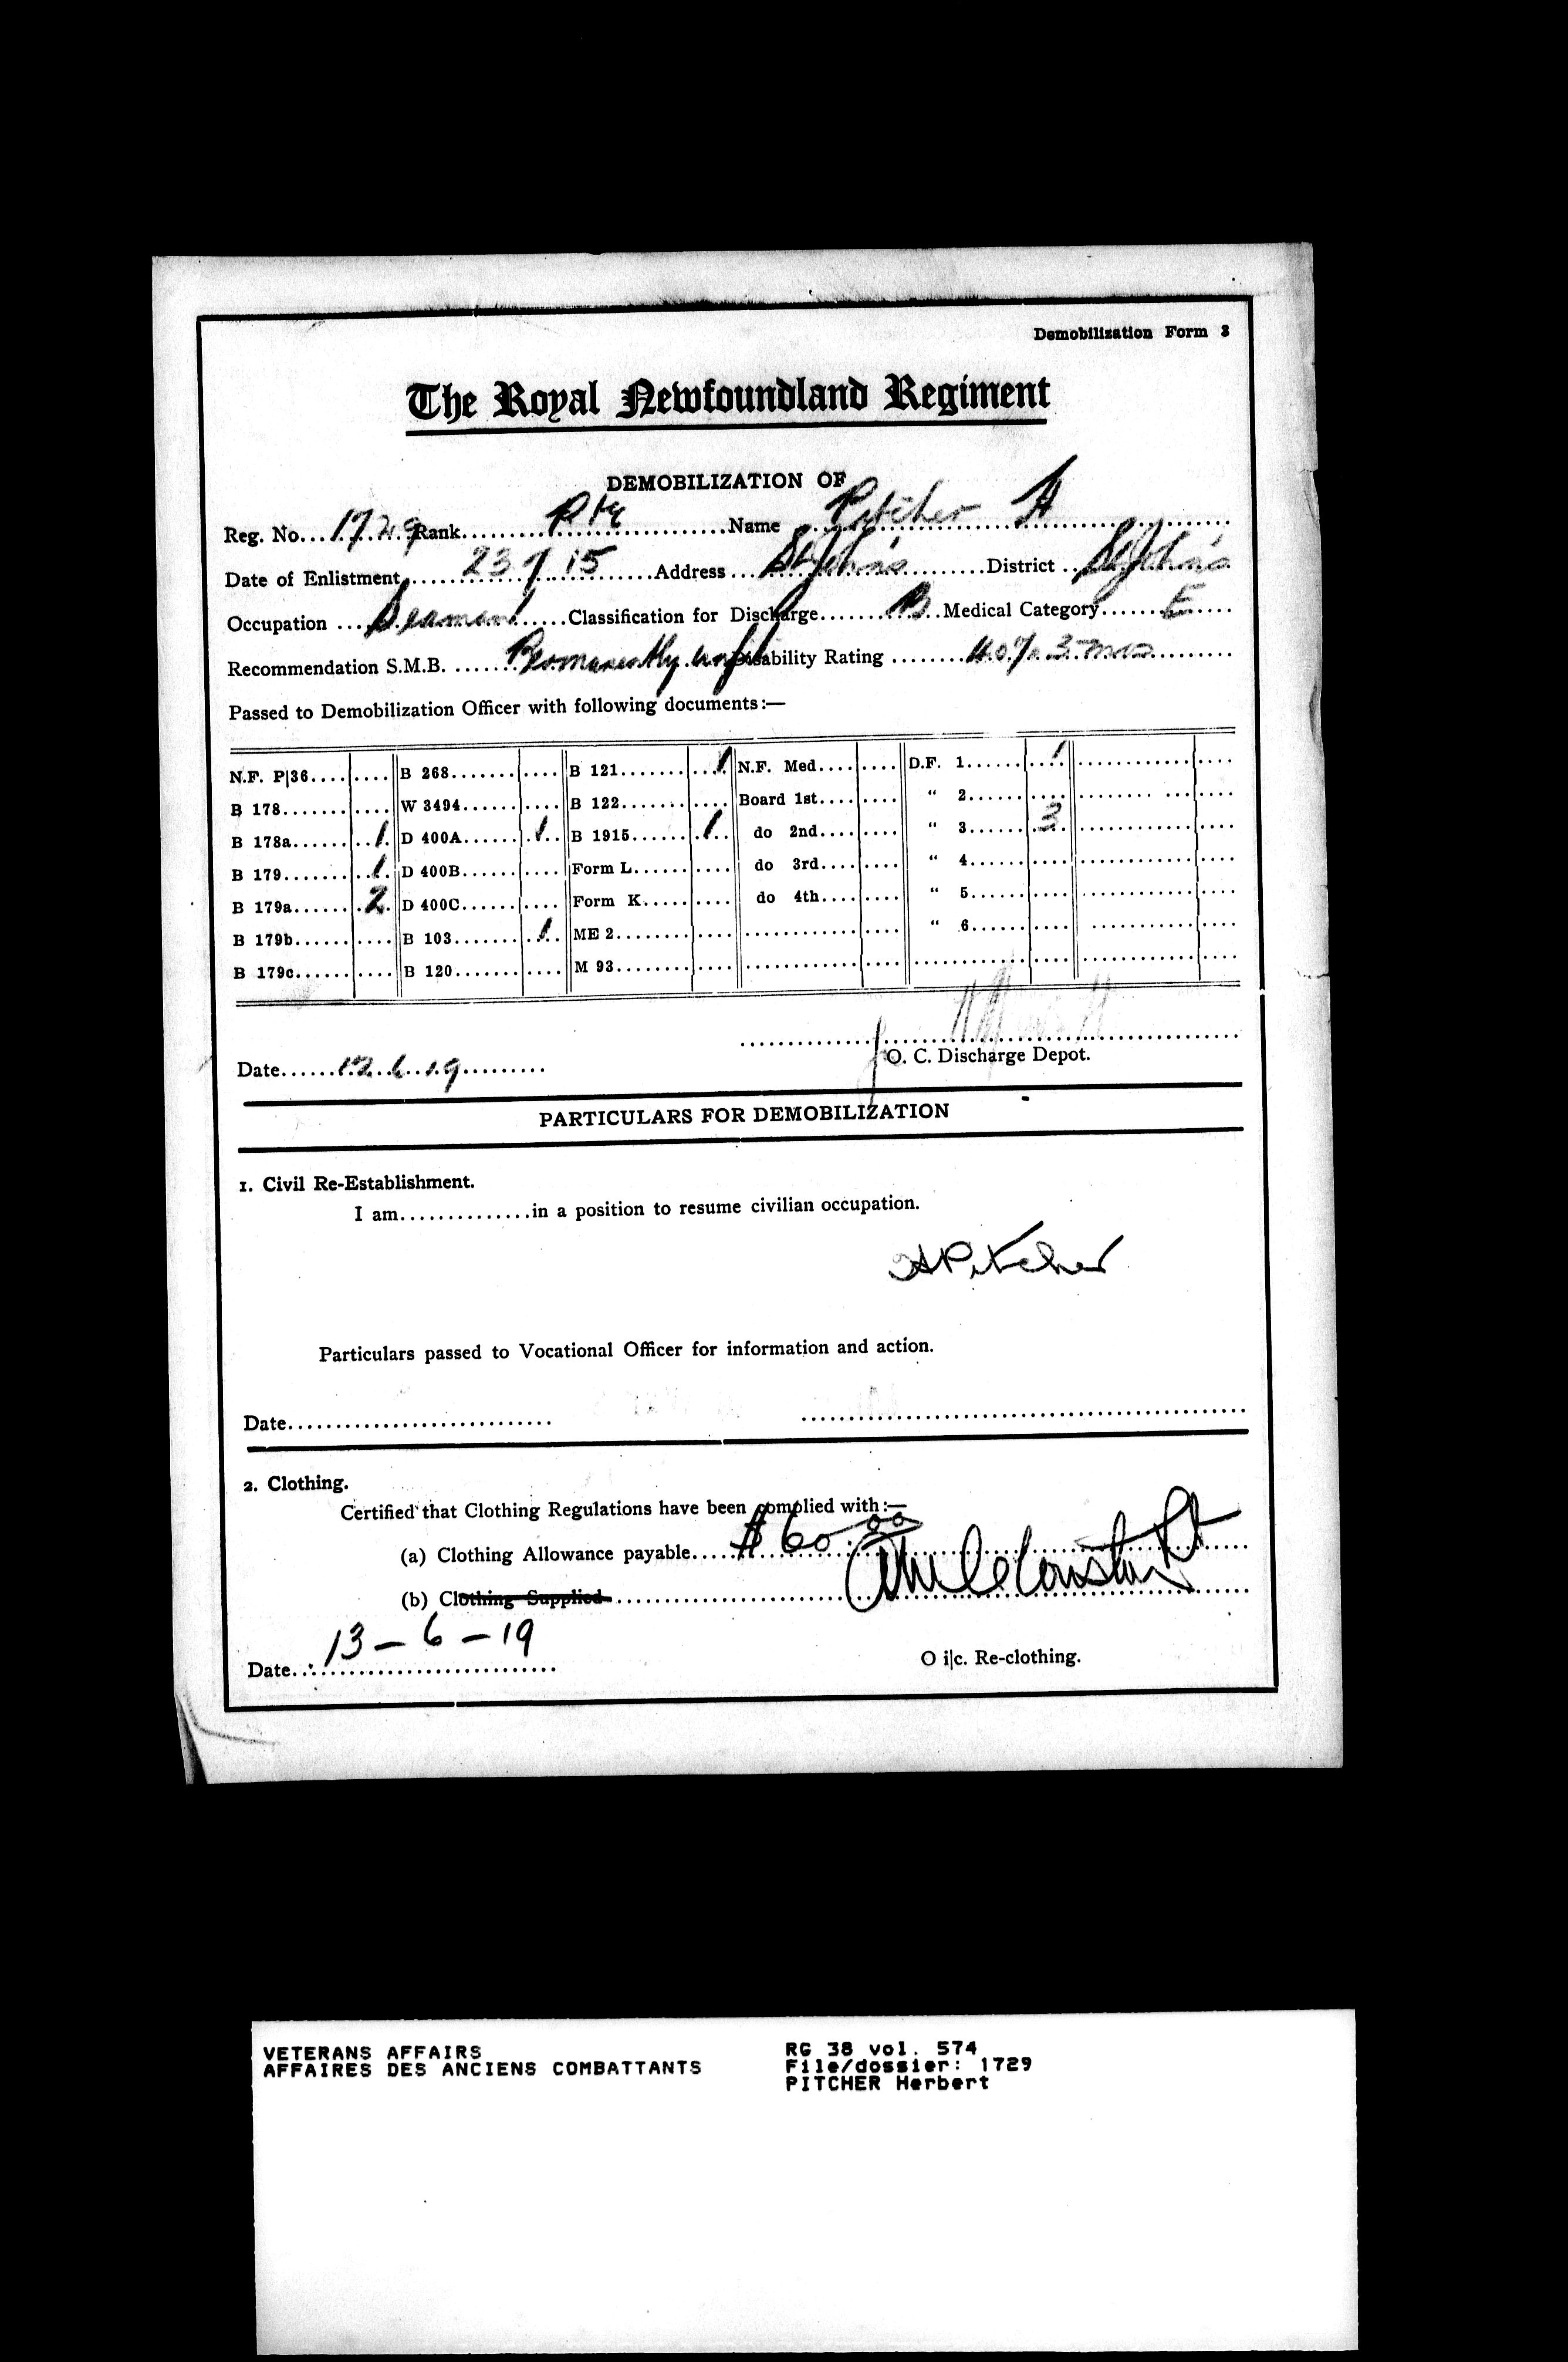 Demobilization Form 3
The Royal Newfoundland Regiment
DEMOBILIZATION OF
Reg. No... 1729 Rank... Pte ...Name ... Pitcher H
Date of Enlistment... 23 7 15 ...Address... St John's ...District ... St John's
Occupation ... Seaman ...Classification for Discharge... B ...Medical Category... E
Recommendation S.M.B. ... Permanently unfit Disability Rating ... 40% 3 mos
Passed to Demobilization Officer with following documents:—
N.F. P|36.... B 268.... B 121.... 1 N.F. Med.... D.F. 1.... 1
B 178.... W 3494.... B 122.... Board 1st.... " 2....
B 178a.... 1 D 400A.... 1 B 1915.... 1 do 2nd.... " 3.... 3
B 179.... 1 D 400B.... Form L.... do 3rd.... " 4....
B 179a.... 2 D 400C.... Form K.... do 4th.... " 5....
B 179b.... B 103.... 1 ME 2.... " 6....
B 179c.... B 120.... M 93....
O. C. Discharge Depot.
Date... 12.6.19
PARTICULARS FOR DEMOBILIZATION
1. Civil Re-Establishment.
I am..............in a position to resume civilian occupation.
H Pitcher
Particulars passed to Vocational Officer for information and action.
Date............................
2. Clothing.
Certified that Clothing Regulations have been complied with:—
(a) Clothing Allowance payable.... $60.00
(b) Clothing Supplied
Date... 13-6-19
O i|c. Re-clothing.
VETERANS AFFAIRS RG 38 vol. 574
AFFAIRES DES ANCIENS COMBATTANTS File/dossier: 1729
PITCHER Herbert